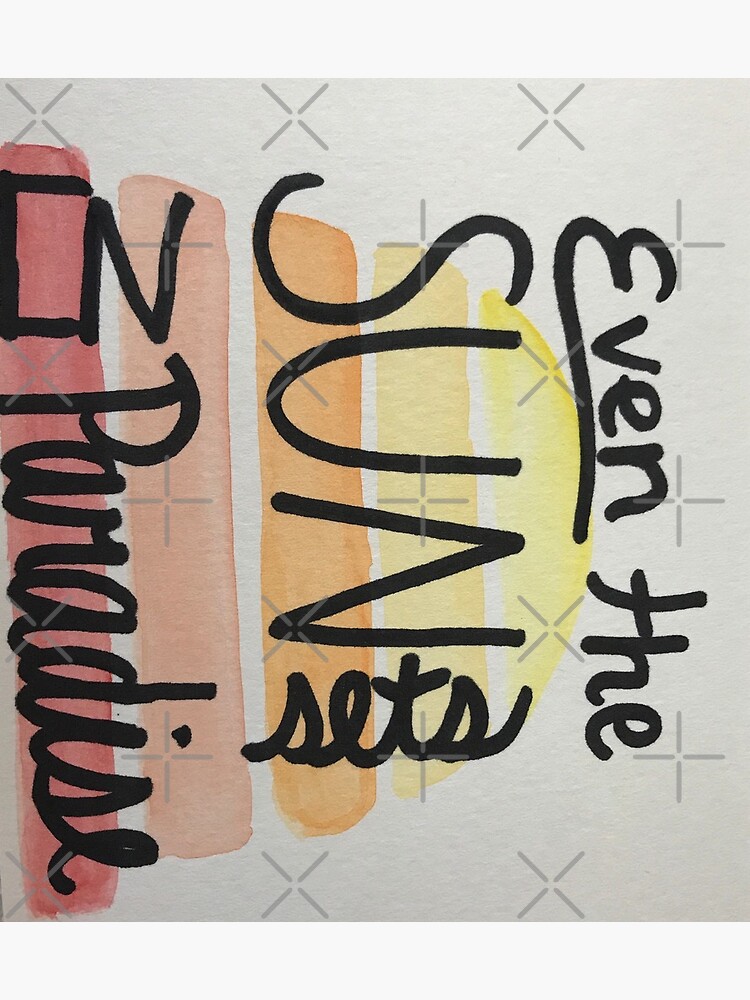 Even the
SUN
sets
Paradise